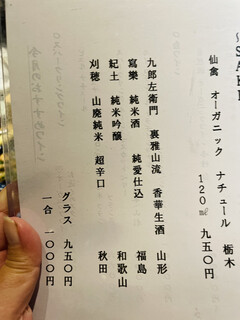 ～SAKE～
仙禽 オーガニック ナチュール 栃木
120㎖ 九五〇円
九郎左衛門 裏雅山流 香華生酒 山形
寫樂 純米酒 純愛仕込 福島
紀土 純米吟醸 和歌山
刈穂 山廃純米 超辛口 秋田
グラス 九五〇円
一合 一〇〇〇円